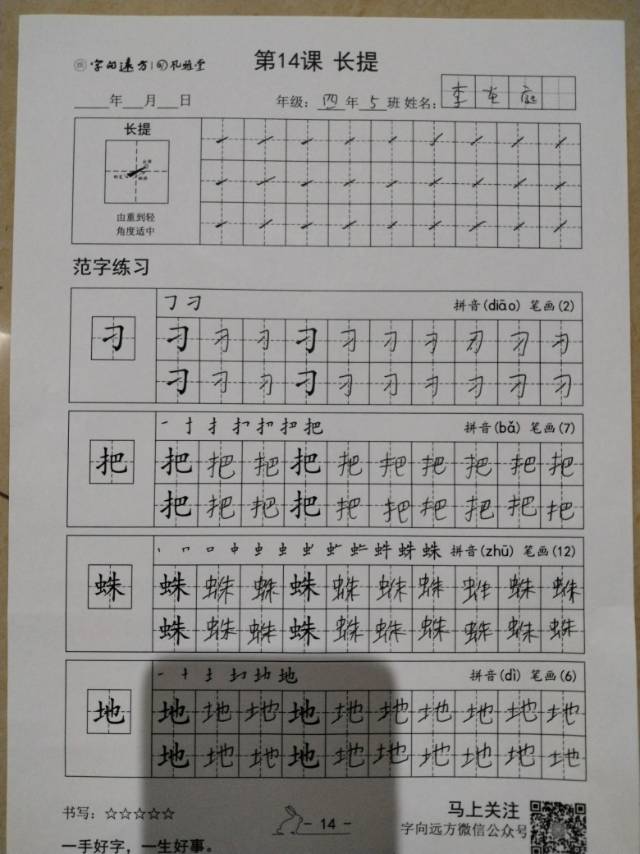 字向远方 孔雅堂
第14课 长提
____年____月____日 年级：四年5班 姓名：李
长提
由重到轻
角度适中
范字练习
拼音(diāo) 笔画(2)
刁 刁 刁 刁 刁 刁 刁 刁 刁 刁 刁
刁 刁 刁 刁 刁 刁 刁 刁 刁 刁
拼音(bǎ) 笔画(7)
把 把 把 把 把 把 把 把 把 把 把
把 把 把 把 把 把 把 把 把 把
拼音(zhū) 笔画(12)
蛛 蛛 蛛 蛛 蛛 蛛 蛛 蛛 蛛 蛛 蛛
蛛 蛛 蛛 蛛 蛛 蛛 蛛 蛛 蛛 蛛
拼音(dì) 笔画(6)
地 地 地 地 地 地 地 地 地 地 地
地 地 地 地 地 地 地 地 地 地
书写：☆☆☆☆☆
- 14 -
马上关注
字向远方微信公众号
一手好字，一生好事。